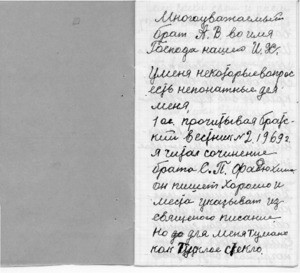 Многоуважаемый
брат А. В во имя
Господа нашего И. Хр.
Уменя некоторые вопрос
есть непонятные для
меня,
1 ое. прочитывая брат-
ский Вестник №2. 1969 г
я читая сочинение
брата С. П. Фадюхина
он пишет хорошо и
места указывает из
священого писания
но до для меня тумано
как тусклое стекло,